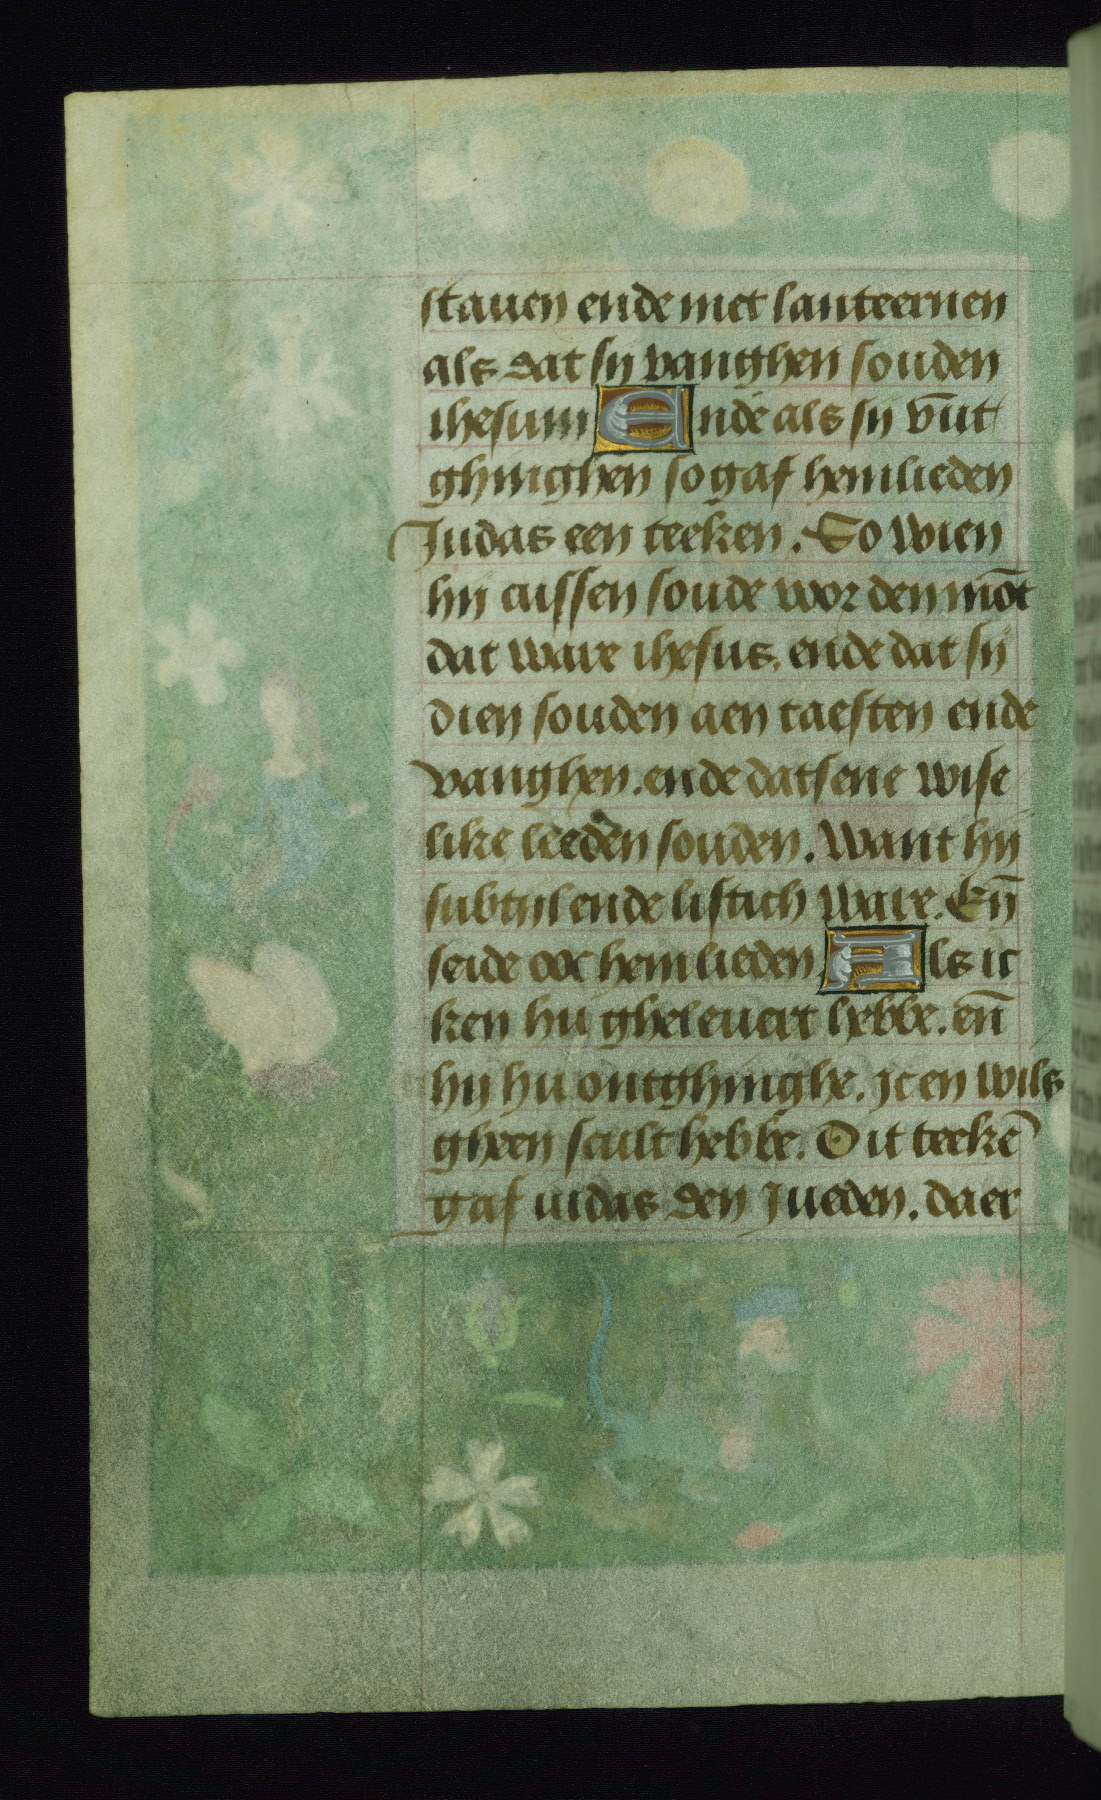 stauen ende met lanteernen
als dat sij vanghen souden
ihesum Ende als sij vūut
ghinghen so gaf hemlieden
Judas een teeken. So wien
hij cussen soude wor den mōt
dat ware ihesus. ende dat sij
dien souden aen taesten ende
vanghen. ende datsene wise
like leeden souden. Want hij
subtijl ende listich ware. Eñ
seide ooc hemlieden Als ic
ken hu ghelevert hebbe. eñ
hij hu ontghinghe. jc en wils
gheen scult hebbe. Dit teekē
gaf iudas den Jueden. daer